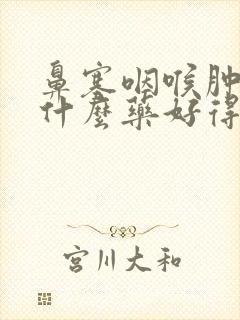 鼻塞咽喉肿
什麼藥好得
宮川大和